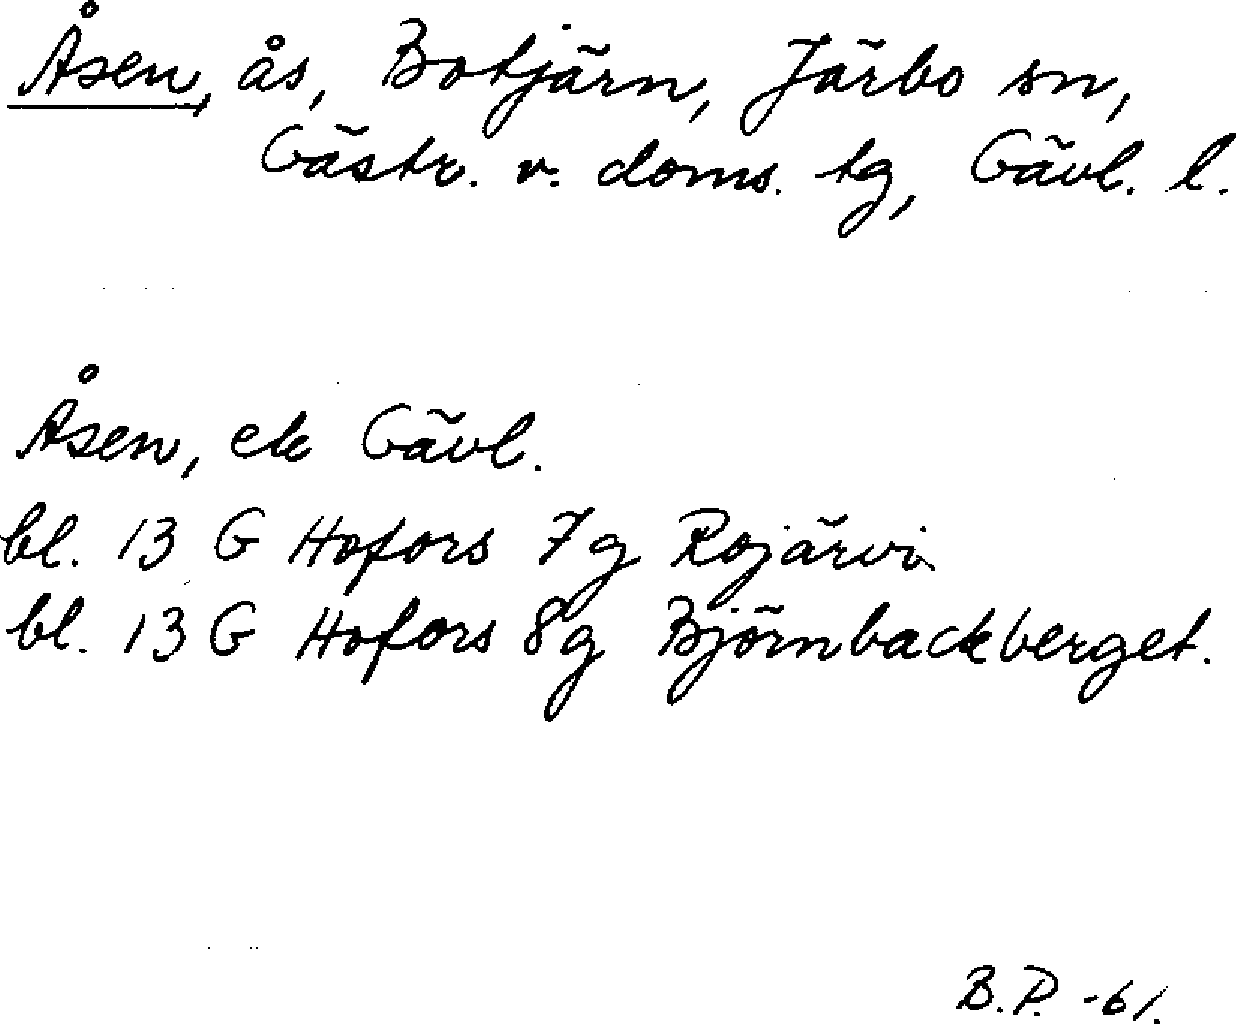 Åsen, ås, Botjärn, Järbo sn,
Gästr. v. doms. tg, Gävl. l.
Åsen, ek Gävl.
bl. 13 G Hofors 7g Rojärvi
bl. 13 G Hofors 8g Björnbackberget.
B.P. -61.